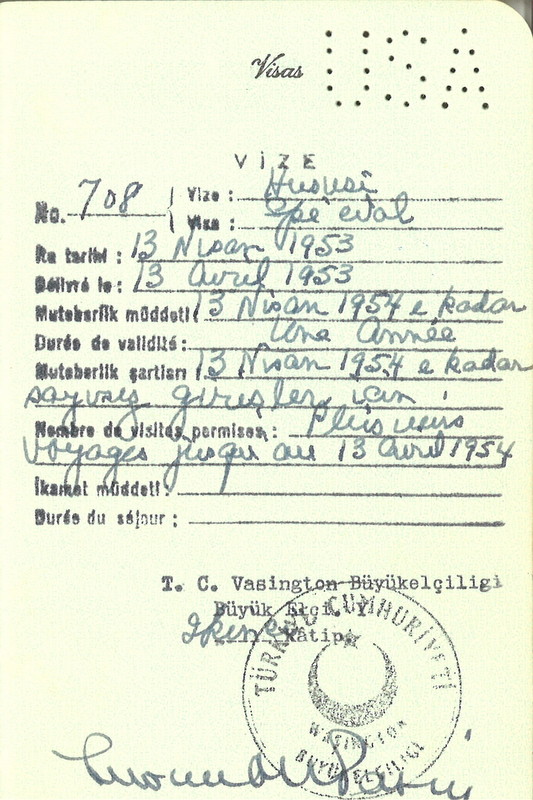 Visas
USA
VİZE
No. 708
Vize : Hususi
Visa : Spécial
Ita tarihi : 13 Nisan 1953
Délivré le : 13 Avril 1953
Muteberlik müddeti 13 Nisan 1954 e kadar
Durée de validité : Une Année
Muteberlik şartları 13 Nisan 1954 e kadar
sayısız girişler için
Nombre de visites permises : Plusieurs
voyages jusqu'au 13 Avril 1954
İkamet müddeti :
Durée du séjour :
T. C. Vasington Büyükelçiligi
Büyük Elçi
İkinci Kâtip
TÜRKİYE CUMHURİYETİ
VAŞİNGTON
BÜYÜKELÇİLİĞİ